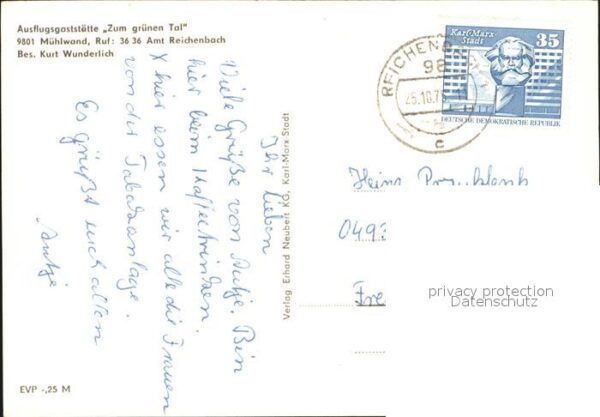 Ausflugsgaststätte „Zum grünen Tal"
9801 Mühlwand, Ruf: 36 36 Amt Reichenbach
Bes. Kurt Wunderlich
Ihr Lieben
Viele Grüße von Antje. Bin
hier beim Kaffeetrinken.
X hier essen wir alle die Frauen
von der Tabakanlage.
Es grüßt euch allen
Antje
EVP -,25 M
Verlag Erhard Neubert KG, Karl-Marx-Stadt
REICHENBA
98
25.10.7
c
Karl-Marx-
Stadt
35
DEUTSCHE DEMOKRATISCHE REPUBLIK
Heinz
0493
Fre
privacy protection
Datenschutz